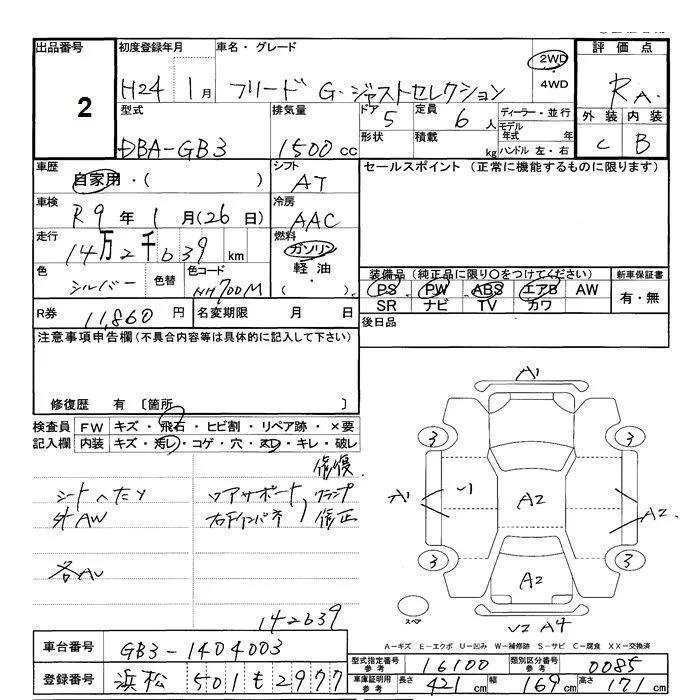 出品番号
2
初度登録年月
H24 1月
車名・グレード
フリード G・ジャストセレクション
2WD
・
4WD
評価点
RA
外装 内装
C B
型式
DBA-GB3
排気量
1500cc
ドア 5
定員 6人
ディーラー・並行
モデル年式 年
形状
積載 kg
ハンドル 左・右
車歴
自家用・( )
シフト
AT
セールスポイント (正常に機能するものに限ります)
車検
R9年1月(26日)
冷房
AAC
走行
14万2千639km
燃料
ガソリン
軽油・
( )
色
シルバー
色替
色コード
NH700M
装備品(純正品に限り○をつけてください)
新車保証書
PS PW ABS エアB AW
有・無
SR ナビ TV カワ
R券 11,860円
名変期限 月 日
後日品
注意事項申告欄(不具合内容等は具体的に記入して下さい)
修復歴 有 〔箇所 〕
検査員 FW キズ・飛石・ヒビ割・リペア跡・×要
記入欄 内装 キズ・汚レ・コゲ・穴・スレ・キレ・破レ
修復
シートヘタリ
コアサポート クランプ
外AW
右インパネ 修正
各AU
142639
A1
3 3
A1 A2 A2
3 3
A2
スペア
V2 A4
A-キズ E-エクボ U-凹み W-補修跡 S-サビ C-腐食 XX-交換済
車台番号 GB3-1404003
型式指定番号 参考 16100
類別区分番号 参考 0085
登録番号 浜松 501 も 2977
車庫証明用 参考 長さ 421cm 幅 169cm 高さ 171cm